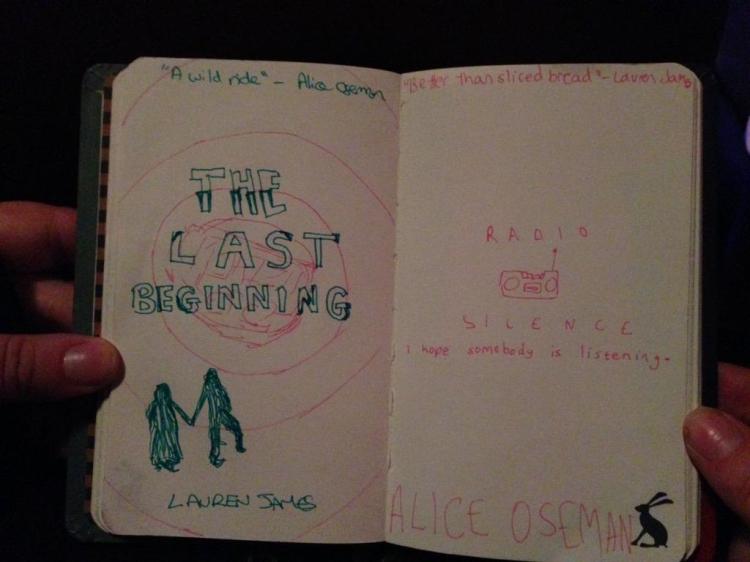 "A wild ride" - Alice Oseman
THE
LAST
BEGINNING
LAUREN JAMES
"Better than sliced bread" - Lauren James
RADIO
SILENCE
i hope somebody is listening.
ALICE OSEMAN